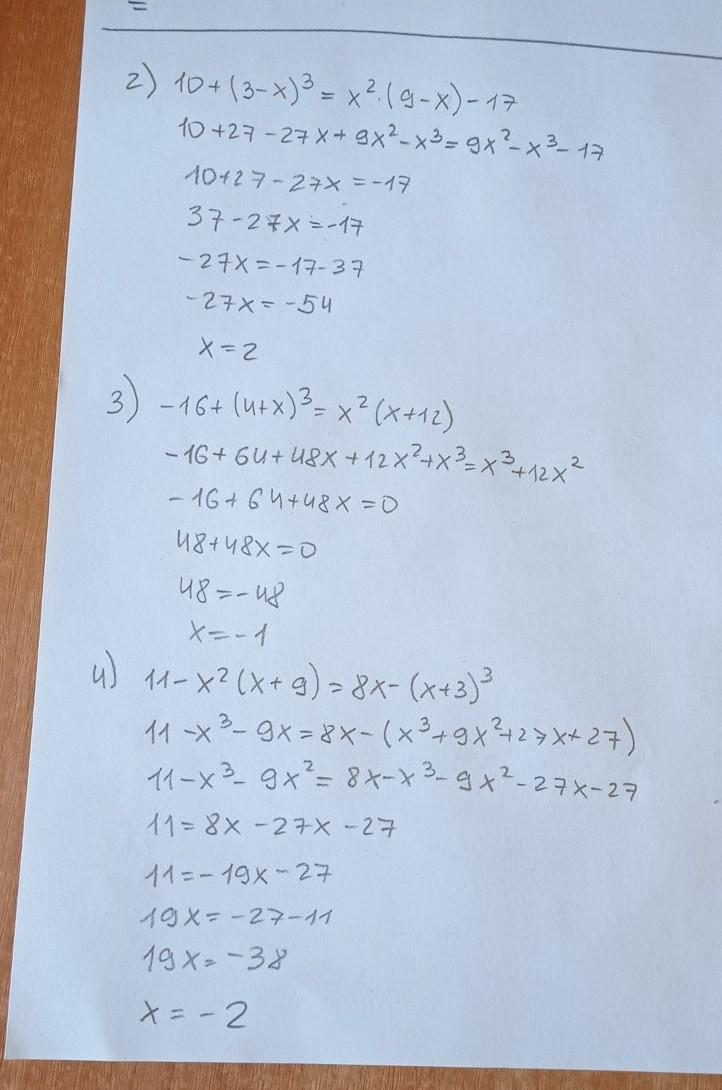 =
2) 10+(3-x)³= x²·(9-x)-17
10+27-27x+9x²-x³=9x²-x³-17
10+27-27x=-17
37-27x=-17
-27x=-17-37
-27x=-54
x=2
3) -16+(4+x)³= x²(x+12)
-16+64+48x+12x²+x³=x³+12x²
-16+64+48x=0
48+48x=0
48=-48
x=-1
4) 11-x²(x+9)=8x-(x+3)³
11-x³-9x=8x-(x³+9x²+27x+27)
11-x³-9x²=8x-x³-9x²-27x-27
11=8x-27x-27
11=-19x-27
19x=-27-11
19x=-38
x=-2